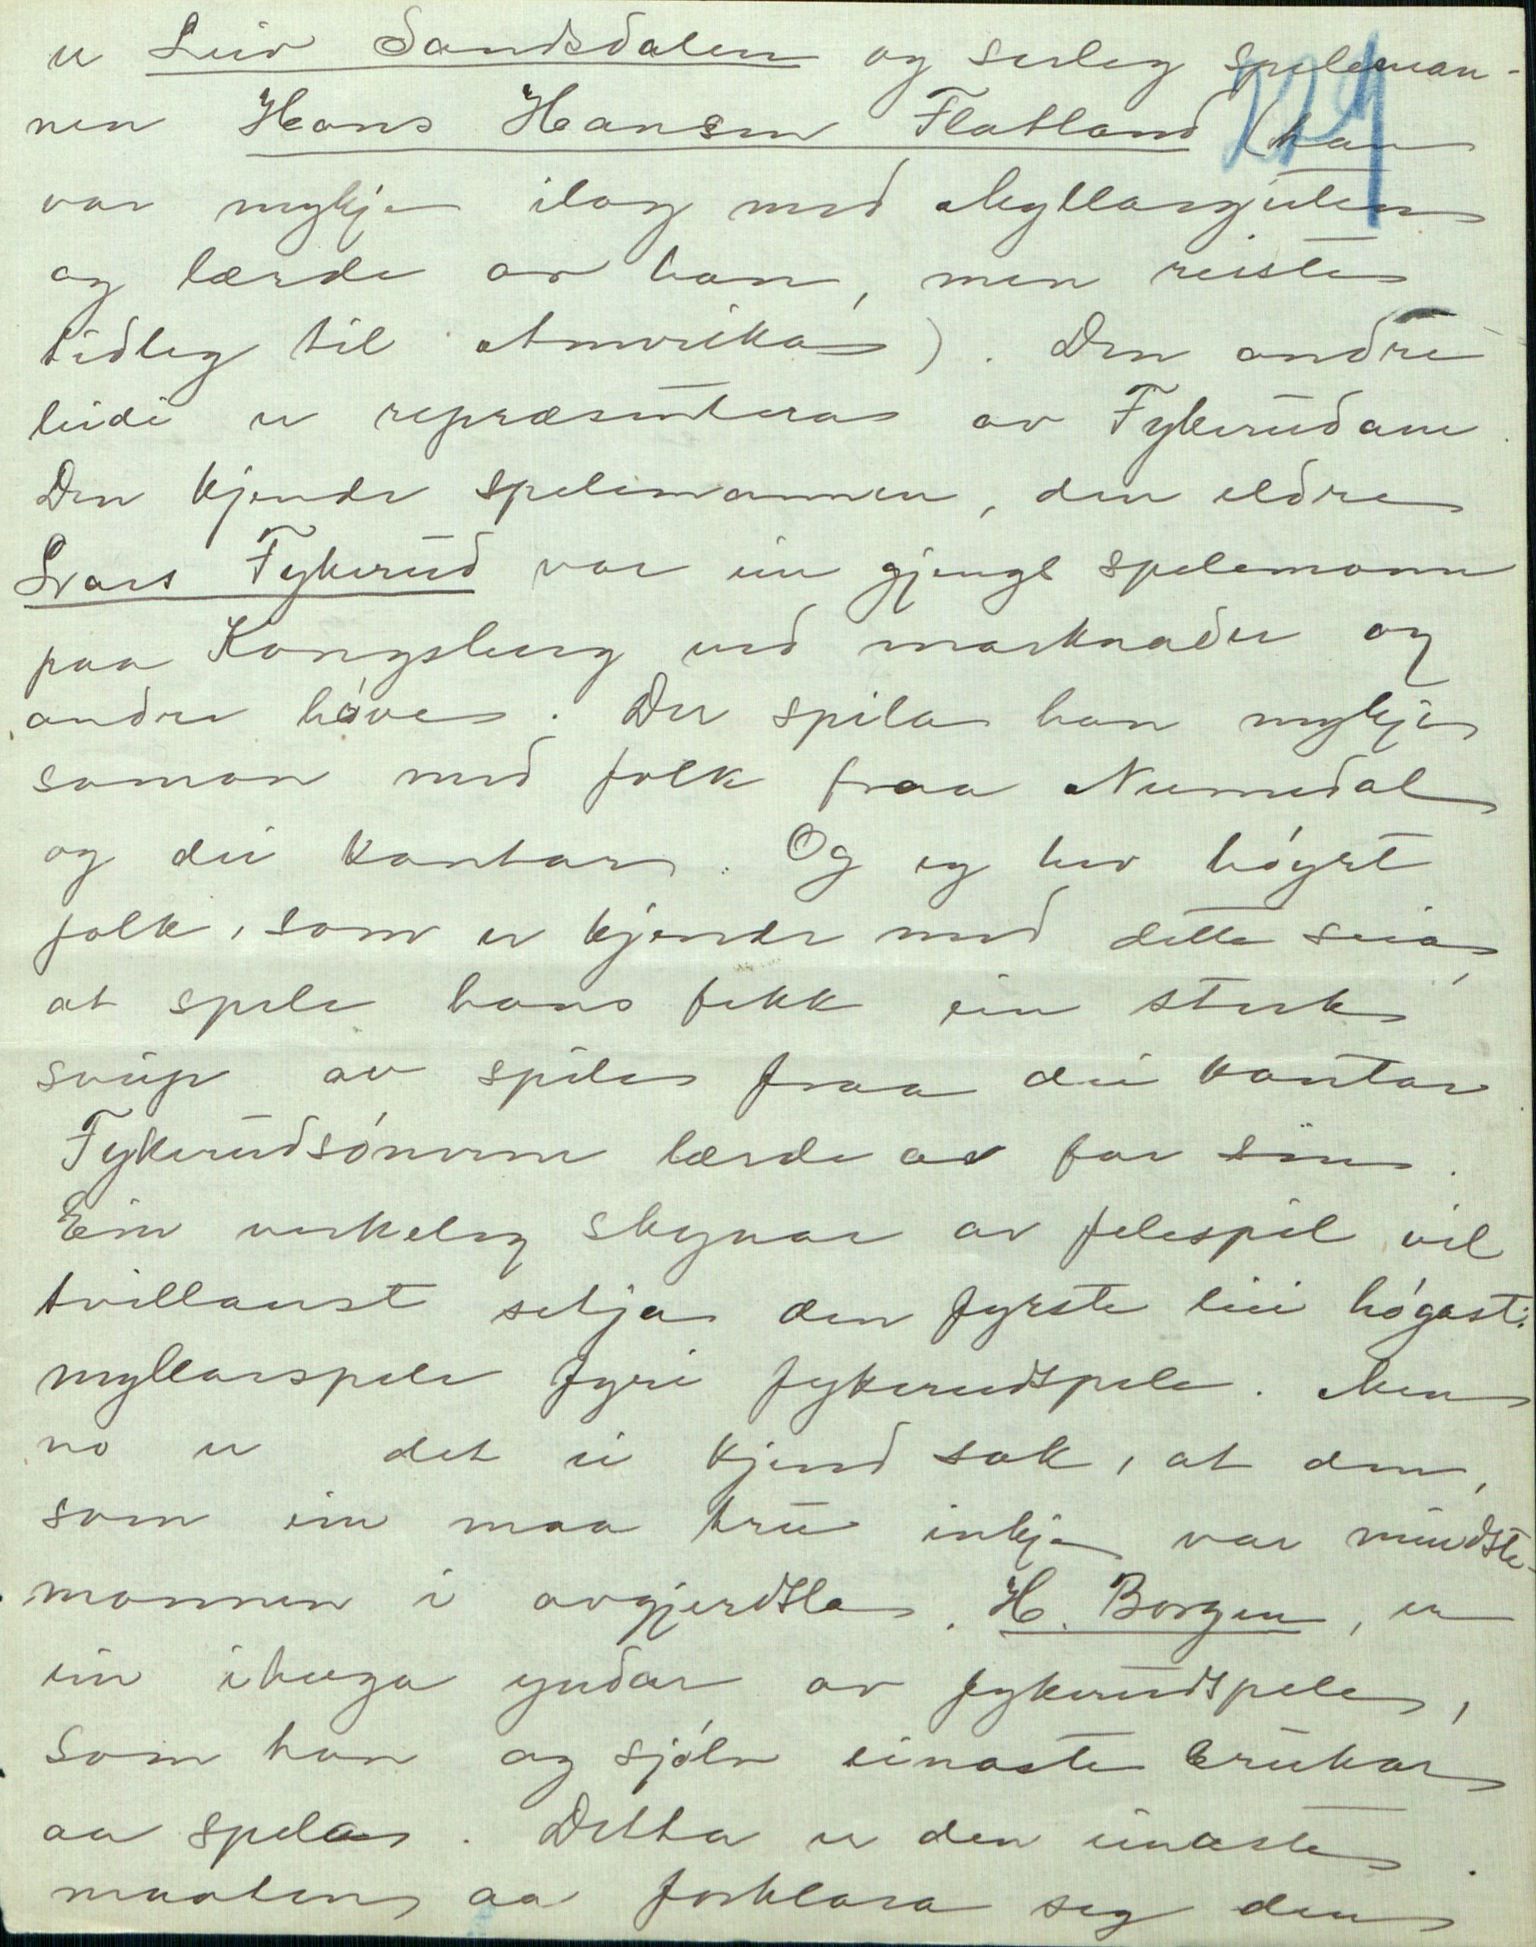 er Leiv Sandsdalen og serleg speleman-
nen Hans Hansen Flatland (han
var mykje ilag med Myllarguten
og lærde av han, men reiste
tidleg til Amerika). Den andre
leidi er repræsentera av Fykerudane.
Den kjende spelemannen, den eldre
Lvars Fykerud var ein gjengs spelemann
paa Kongsberg ved marknader og
andre høve. Der spila han mykje
saman med folk fraa Numedal
og dei kantar. Og eg hev høyrt
folk, som er kjende med dette seia,
at spele hans fekk ein sterk
svip av spile fraa dei kantar
Fykerudsønerne lærde av far sin.
Ein verkeleg skynar av felespil vil
tvillaust setja den fyrste leii høgast:
myllarspele fyri fykerudspele. Men
no er det ei kjend sak, at den,
som ein maa tru inkje var mindste-
mannen i avgjerdsla. H. Borgen, er
ein ihuga yndar av fykerudspele,
som han og sjølv einaste brukar
aa spela. Detta er den einaste
maaten aa forklara seg den
224